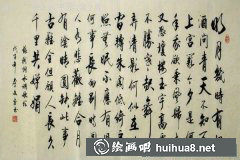 明月幾時有把
酒問青天不知天
上宮闕今夕是何
年我欲乘風歸去
又恐瓊樓玉宇高處
不勝寒起舞
弄清影何似在人
間轉朱閣低綺户
照無眠不應有恨
何事長向别時圓
人有悲歡離合月
有陰晴圓缺此事
古難全但願人長久
千里共嬋娟
绘画吧
http://www.huihua8.com